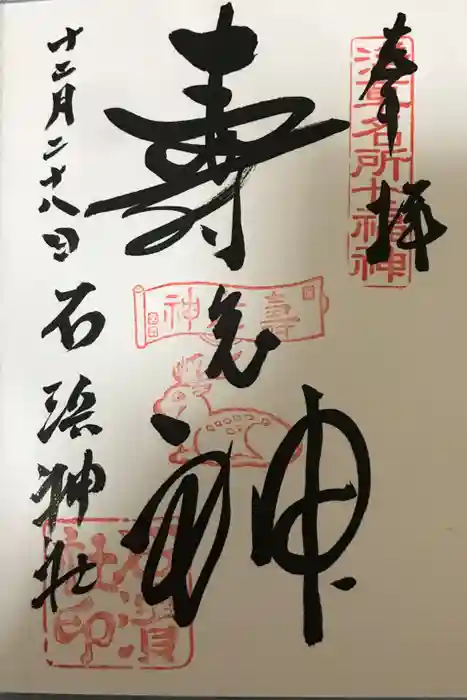 奉拝
浅草名所七福神
寿老神
寿老神
十二月二十八日 石浜神社
石濱神社印